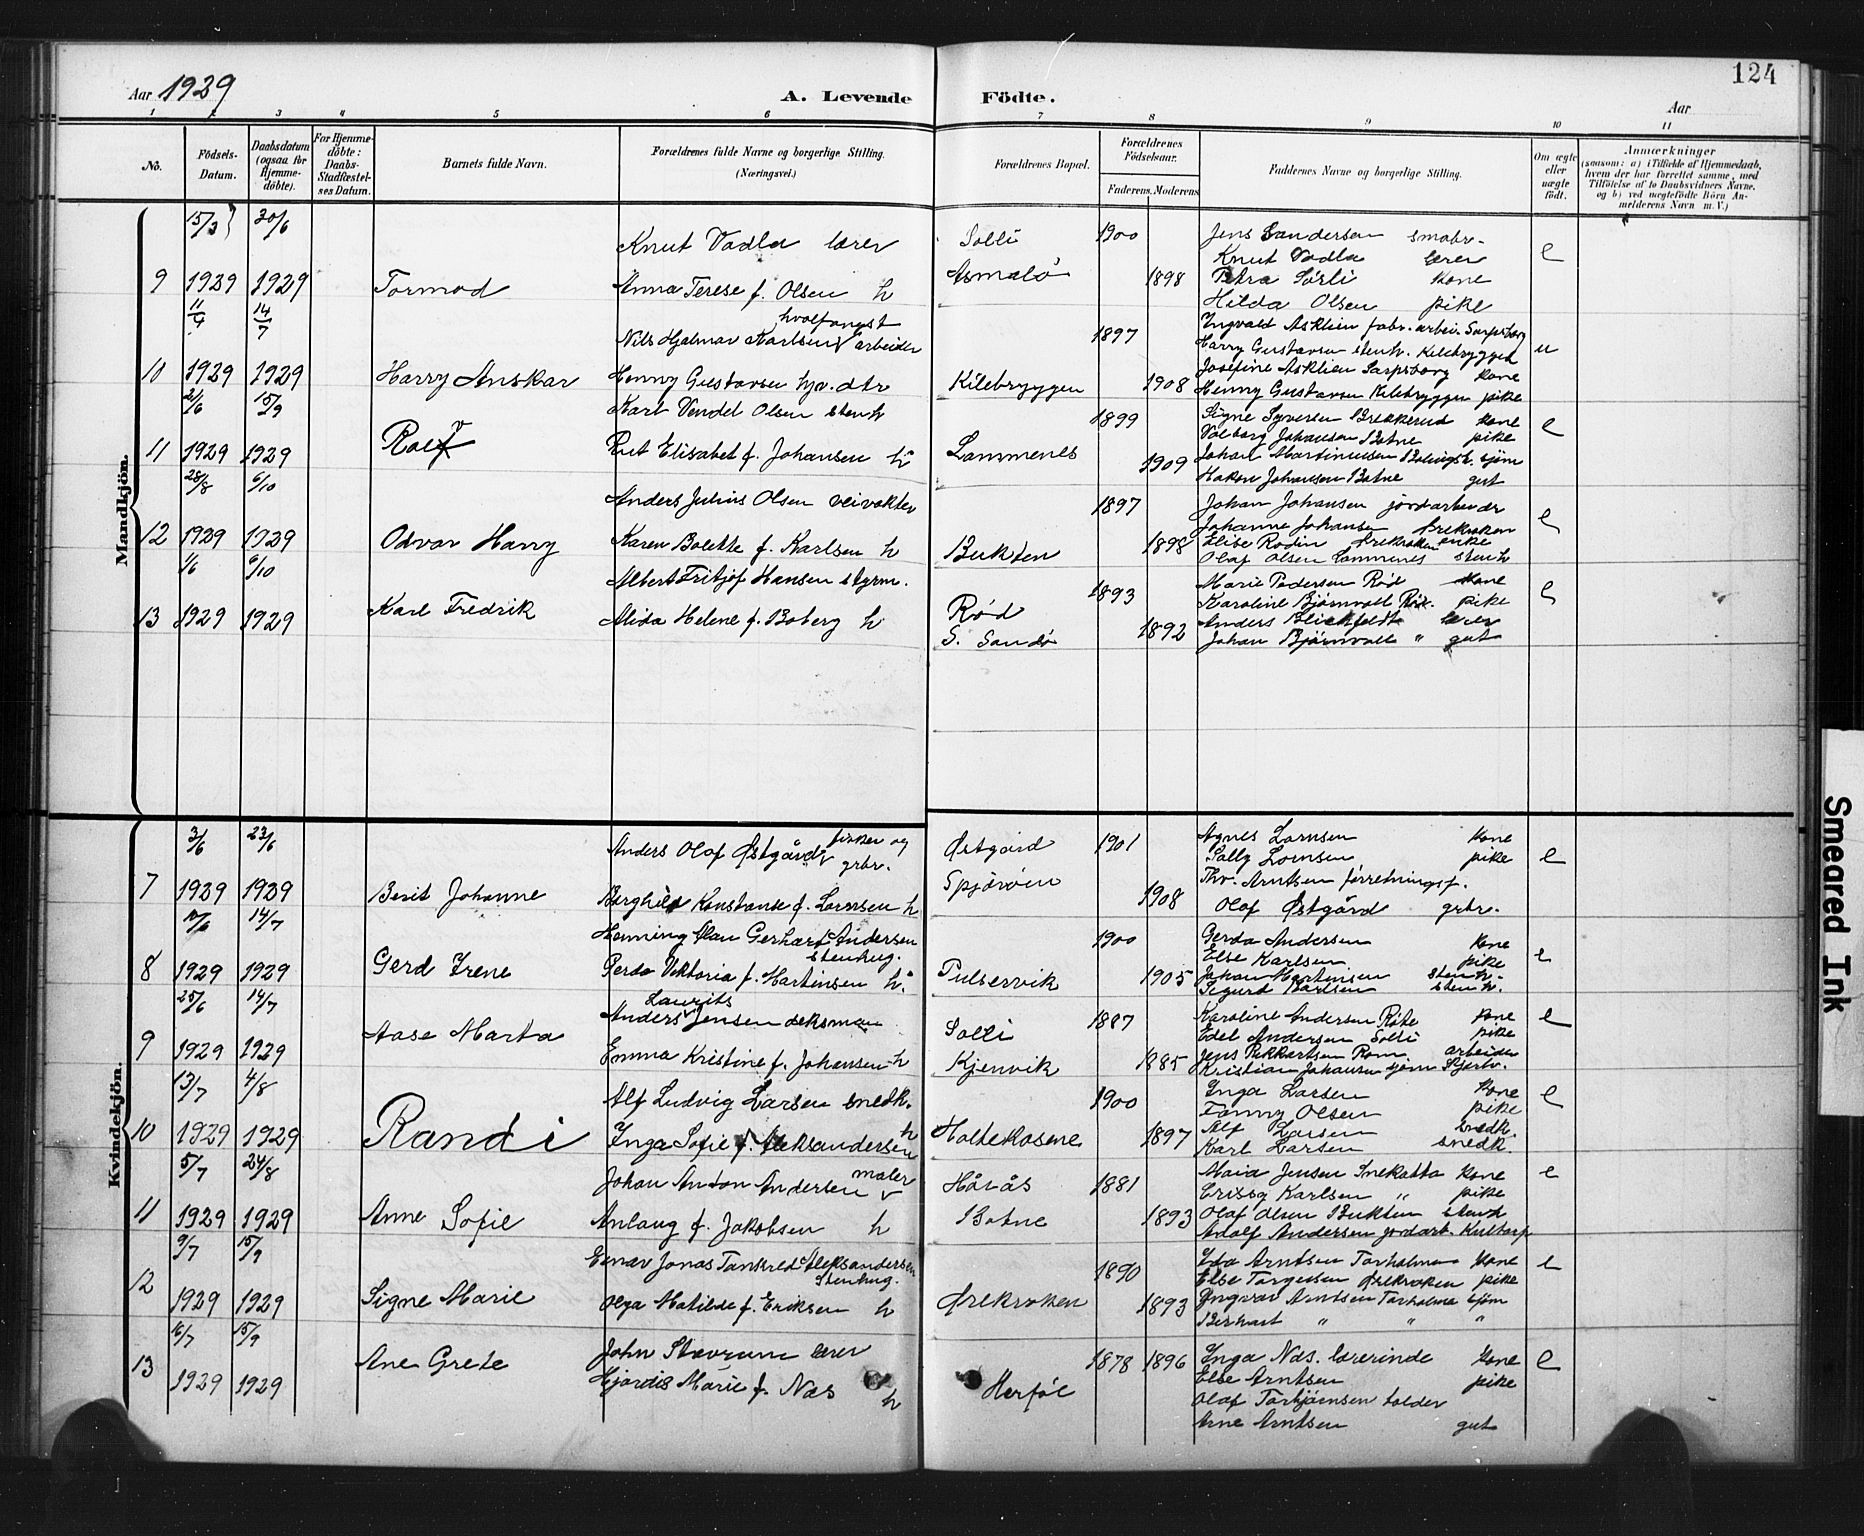 124
Aar 1929
A. Levende Födte.
Aar
1 2 3 4 5 6 7 8 9 10 11
No.
Födsels-Datum.
Daabsdatum (ogsaa for Hjemme-döbte).
For Hjemme-döbte: Daabs-Stadfæstel-ses Datum.
Barnets fulde Navn.
Forældrenes fulde Navne og borgerlige Stilling. (Næringsvei.)
Forældrenes Bopæl.
Forældrenes Födselsaar.
Faderens. Moderens.
Faddernes Navne og borgerlige Stilling.
Om ægte eller uægte födt.
Anmærkninger
(saasom: a) i Tilfælde af Hjemmedaab, hvem der har forrettet samme, med Tilföielse af to Daabsvidners Navne, og b) ved uægtefödte Börn Anmelderens Navn m. V.)
Mandkjön.
15/3 20/6
Knut Vadla lærer Solli 1900 Jens Sandersen smabr. e
Knut Vadla lærer
9 1929 1929 Tormod Anna Terese f. Olsen h Asmalö 1898 Petra Sörli kone
Hilda Olsen pike
11/4 14/7 hvalfangst
Nils Hjalmar Karlsen arbeider 1897 Ingvald Asklien fabr. arbei. Sarpsborg
Harry Gustavsen stenh. Kilebryggen u
10 1929 1929 Harry Anskar Henny Gustavsen hjv. dtr Kilebryggen 1908 Josefine Asklien Sarpsborg kone
Henny Gustavsen Kilebryggen pike
2/6 15/9 Kart Vendel Olsen stenh 1899 Signe Syversen Brekkerud kone e
Valborg Johansen Botne pike
11 1929 1929 Rolf Rut Elisabet f. Johansen h Lammenes 1909 Johan Martinussen sjöm
Hakon Johansen Botne gut
28/8 6/10 Anders Julius Olsen veivakter 1897 Johan Johansen jordarbeider e
Johanne Johansen Ørekroken
12 1929 1929 Odvar Harry Karen Bolette f. Karlsen h Bukten 1898 Elise Rodin Ørekroken enke
Olaf Olsen Lammenes stenh
1/6 6/10 Albert Fritjof Hansen styrm. 1893 Marie Pedersen Rød kone e
Karoline Bjørnvall Rød. pike
13 1929 1929 Karl Fredrik Alida Helene f. Boberg h Rød S. Sandø 1892 Anders Blichfeldt lærer
Johan Bjørnvall " gut
Kvindekjön.
3/6 23/6 Anders Olaf Østgård fisker og grbr. Østgård 1901 Agnes Lornsen kone
Sally Lornsen pike e
7 1929 1929 Berit Johanne Borghild Konstanse f. Lornsen h Spjærøen 1908 Thv. Arntsen forretningsf.
Olaf Østgård grbr.
14/7 Henning Gerhart Andersen stenhug. 1900 Gerda Andersen kone
Else Karlsen pike e
8 1929 1929 Gerd Irene Gerda Viktoria f. Martinsen h. Pulservik 1905 Johan Martinsen stenh.
Sigurd Karlsen stenh.
25/6 14/7 Anders Laurits Jensen deksman Solli 1887 Karoline Andersen Røte kone e
Edel Andersen Solli pike
9 1929 1929 Aase Marta Emma Kristine f. Johansen h Kjenvik 1885 Jens Rikkartsen Rom arbeider
Kristian Johansen sjøm
13/7 4/8 Alf Ludvig Larsen snedk. 1900 Inga Larsen kone e
Fanny Olsen pike
10 1929 1929 Randi Inga Sofie f. Aleksandersen h Holtekosene 1897 Alf Larsen snedk.
Karl Larsen snedk.
5/7 24/8 Johan Anton Andersen maler Håsås 1881 Maia Jensen Snekatta kone e
Erissy Karlsen " pike
11 1929 1929 Anne Sofie Anlaug f. Jakobsen h Botne 1893 Olaf Olsen Bukten stenh
Adolf Andersen jordarb. Kultorp
9/7 15/9 Einar Jonas Tankred Aleksandersen Stenhug. 1890 Ida Arntsen Torholmen kone e
Else Torgersen Ørekroken pike
12 1929 1929 Signe Marie Olga Matilde f. Eriksen h Ørekroken 1893 Yngvar Arntsen Torholmen sjøm
Berhart " " "
16/7 15/9 John Stavrum lærer 1878 1896 Inga Næs. lærerinde kone e
13 1929 1929 Ane Grete Hjørdis Marie f. Næs h Herføl Else Arntsen pike
Olaf Torbjørnsen tolder
Arne Arntsen gut
Smeared Ink